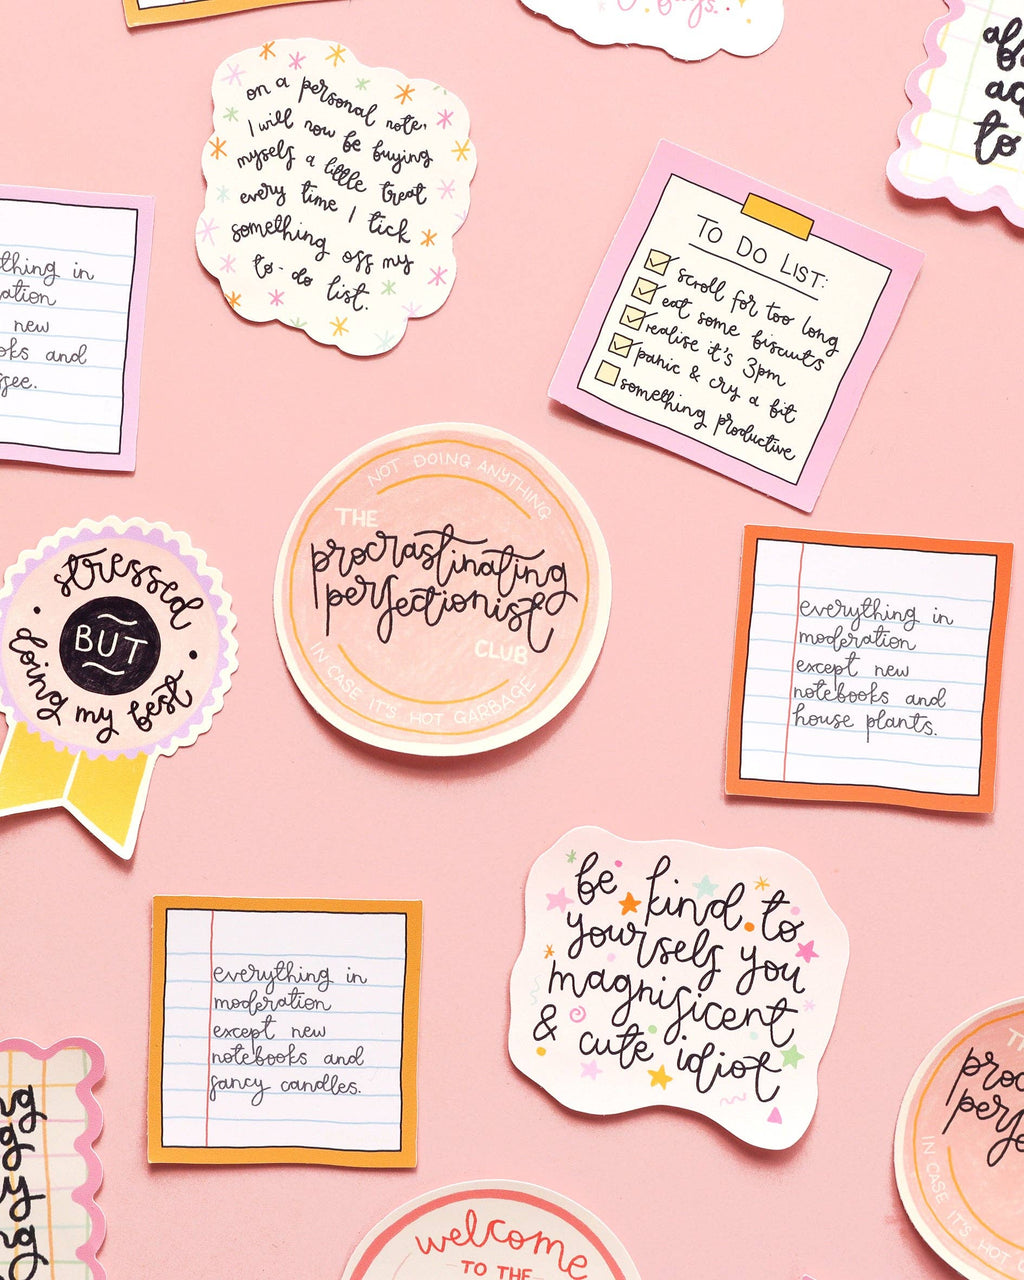 days.
on a personal note,
I will now be buying
myself a little treat
every time I tick
something off my
to-do list.
to
TO DO LIST:
scroll for too long
eat some biscuits
realise it's 3pm
panic & cry a bit
something productive
thing in
ation
new
oks and
ffee.
NOT DOING ANYTHING
THE
procrastinating
perfectionist
CLUB
IN CASE IT'S HOT GARBAGE
stressed
BUT
doing my best
everything in
moderation
except new
notebooks and
house plants.
be kind to
yourself you
magnificent
& cute idiot
everything in
moderation
except new
notebooks and
fancy candles.
proc
perf
IN CASE IT'S HOT
welcome
TO THE